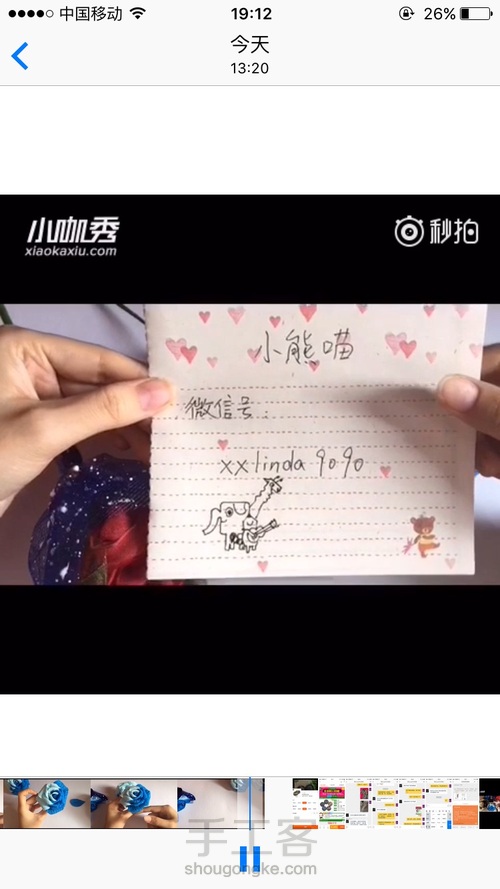 中国移动 19:12 26%
今天
13:20
小咖秀
xiaokaxiu.com
秒拍
小熊喵
微信号:
xxlinda9090
手工客
shougongke.com